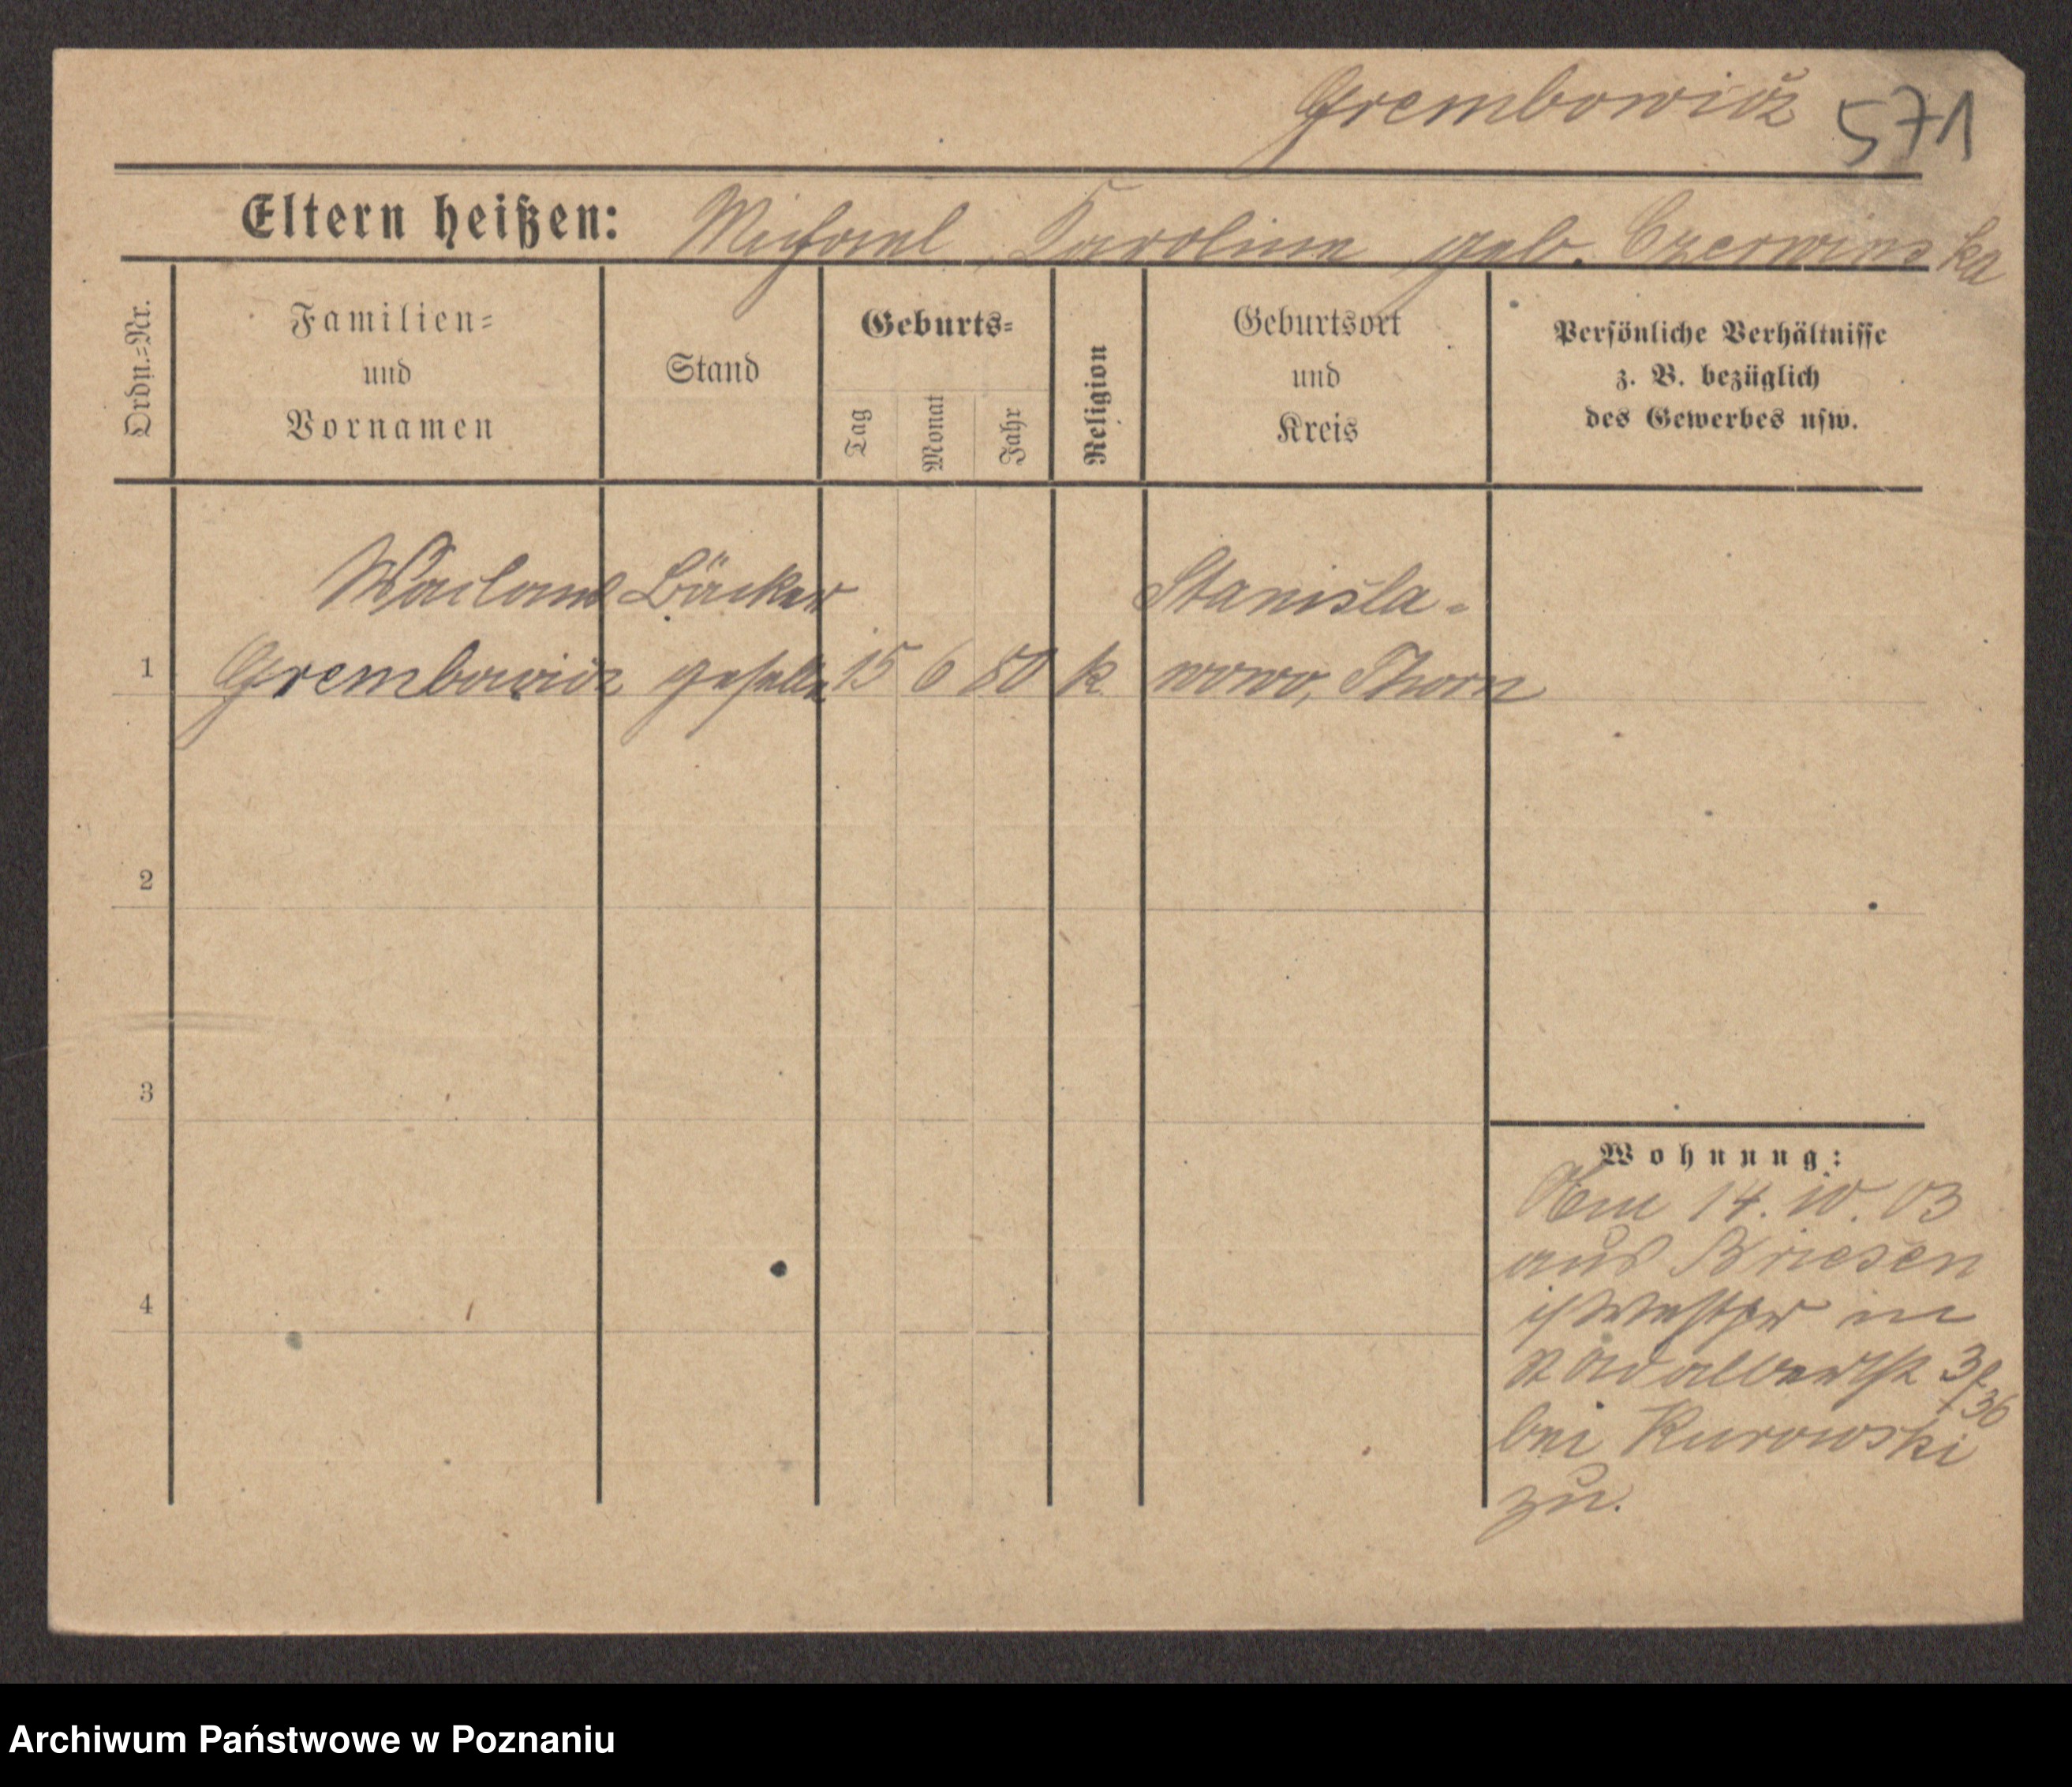 Grembowicz 571
Eltern heißen: Michael, Karoline geb. Czerwinska
Ordn.=Nr.
Familien=
und
Vornamen
Stand
Geburts=
Tag
Monat
Jahr
Religion
Geburtsort
und
Kreis
Persönliche Verhältnisse
z. B. bezüglich
des Gewerbes usw.
Bäcker Stanisla-
1 Grembowicz geselle 15 6 80 k. wowo, Thorn
2
3
4
Wohnung:
14. 10. 03
aus Briesen
in
St Adalbertstr
bei Kurowski
zu.
Archiwum Państwowe w Poznaniu